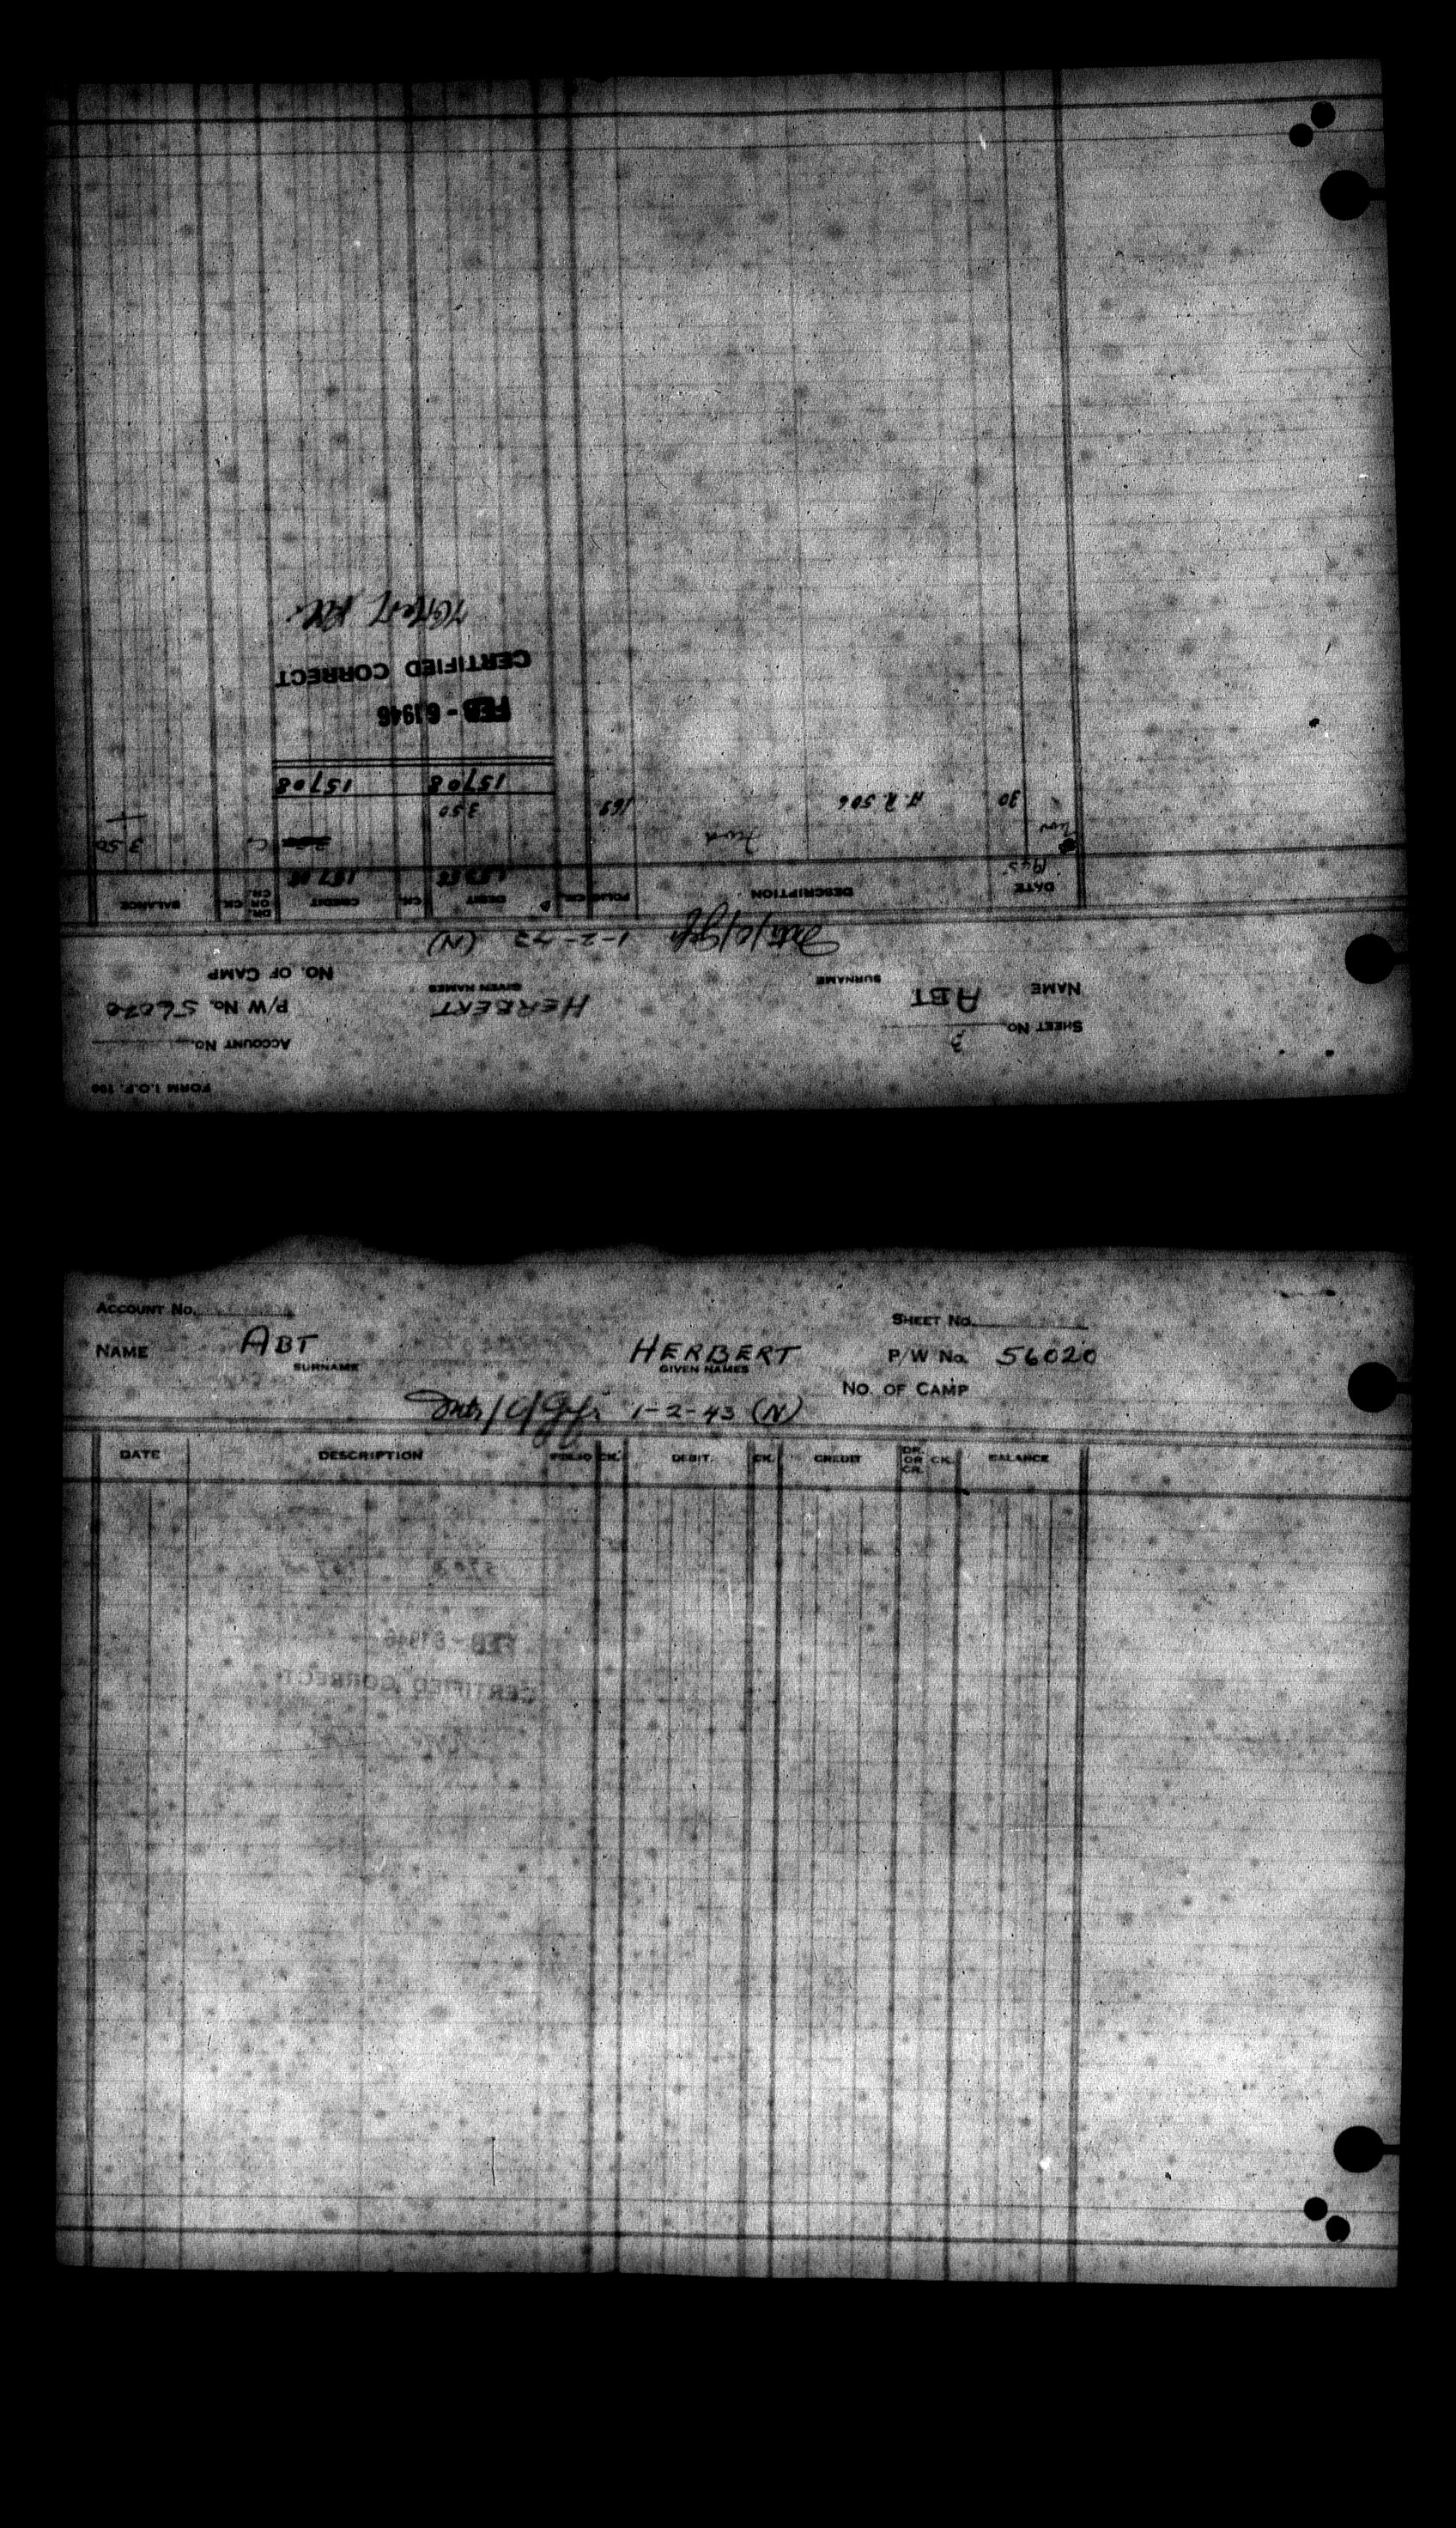 FORM I.O.P. 100
SHEET No. 3 ACCOUNT No.
NAME ABT HERBERT P/W No. 56020
SURNAME GIVEN NAMES NO. OF CAMP
1-2-43 (N)
DATE DESCRIPTION FOLIO CK. DEBIT CK. CREDIT DR. OR CR. CK. BALANCE
1945
Nov Fwd C 3 50
30 A.R. 506 169 3 50
157 08 157 08
FEB - 6 1946
CERTIFIED CORRECT
ACCOUNT No. SHEET No.
NAME ABT HERBERT P/W No. 56020
SURNAME GIVEN NAMES NO. OF CAMP
1-2-43 (N)
DATE DESCRIPTION FOLIO CK. DEBIT. CK. CREDIT DR. OR CR. CK. BALANCE